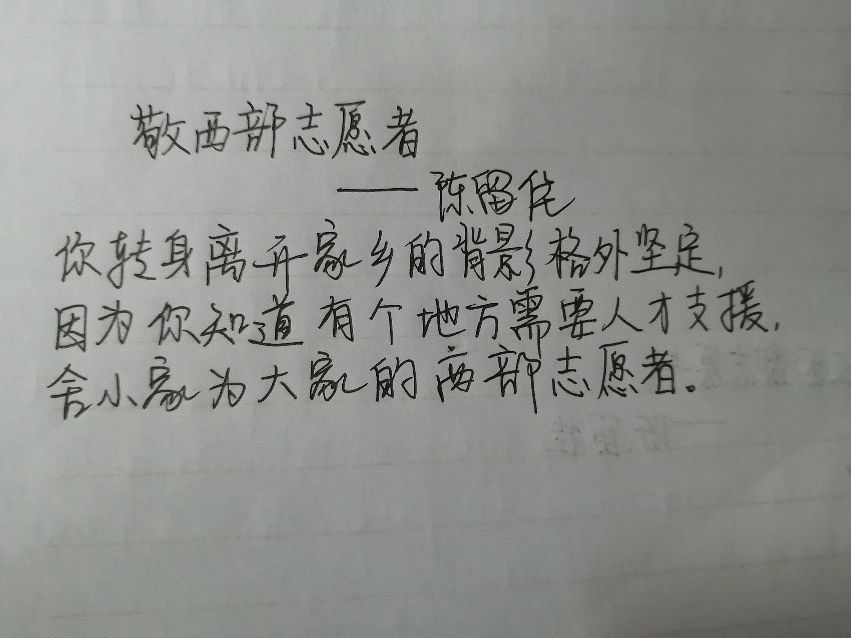 敬西部志愿者
——陈留佬
你转身离开家乡的背影格外坚定，
因为你知道有个地方需要人才支援，
舍小家为大家的西部志愿者。